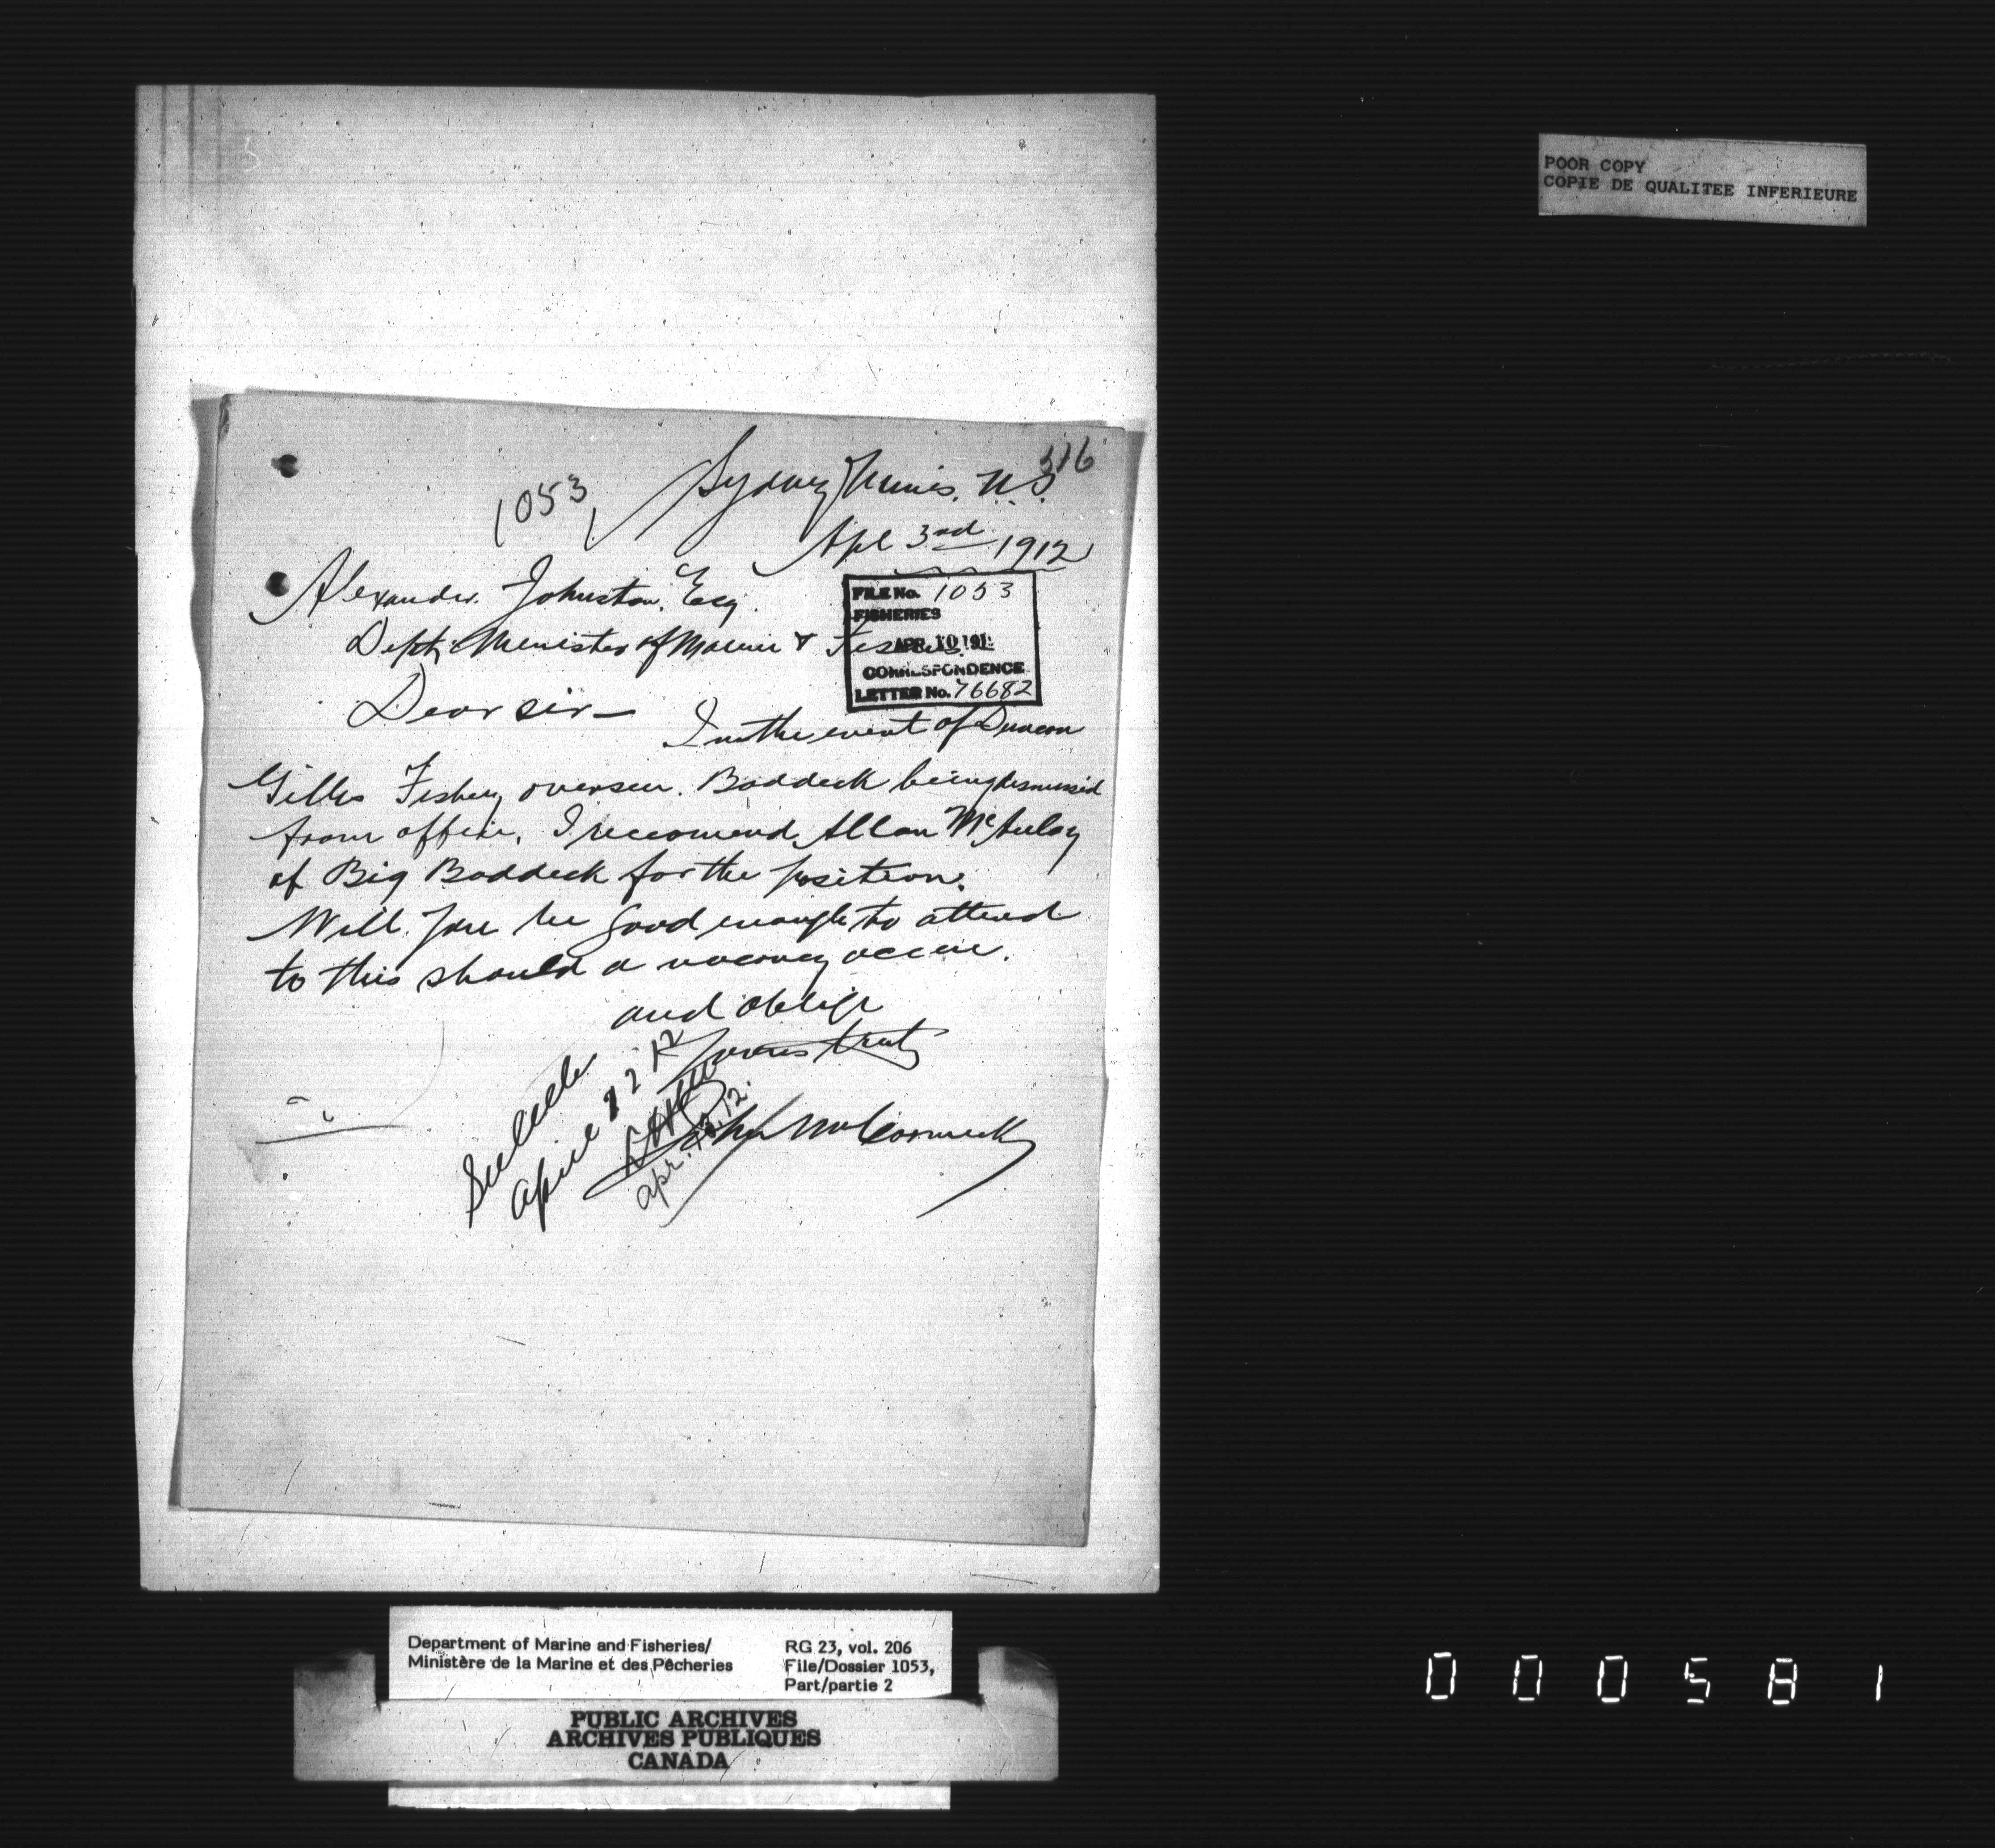 POOR COPY
COPIE DE QUALITEE INFERIEURE
316
1053
Sydney Mines. N.S.
Apl 3rd 1912
Alexander Johnston. Esq.
Dept Minister of Marine & Fisheries
FILE No. 1053
FISHERIES
APR 10 191
CORRESPONDENCE
LETTER No. 76682
Dear sir—
In the event of Duncan
Gillis Fishery overseer. Baddeck being dismissed
from office, I reccomend Allan McAulay
of Big Baddeck for the position.
Will you be good enough to attend
to this should a vacancy occur.
and oblige
Yours truly
John McCormick
April 12 12
apr. 12. 12.
Department of Marine and Fisheries/
Ministère de la Marine et des Pêcheries
RG 23, vol. 206
File/Dossier 1053,
Part/partie 2
PUBLIC ARCHIVES
ARCHIVES PUBLIQUES
CANADA
000581